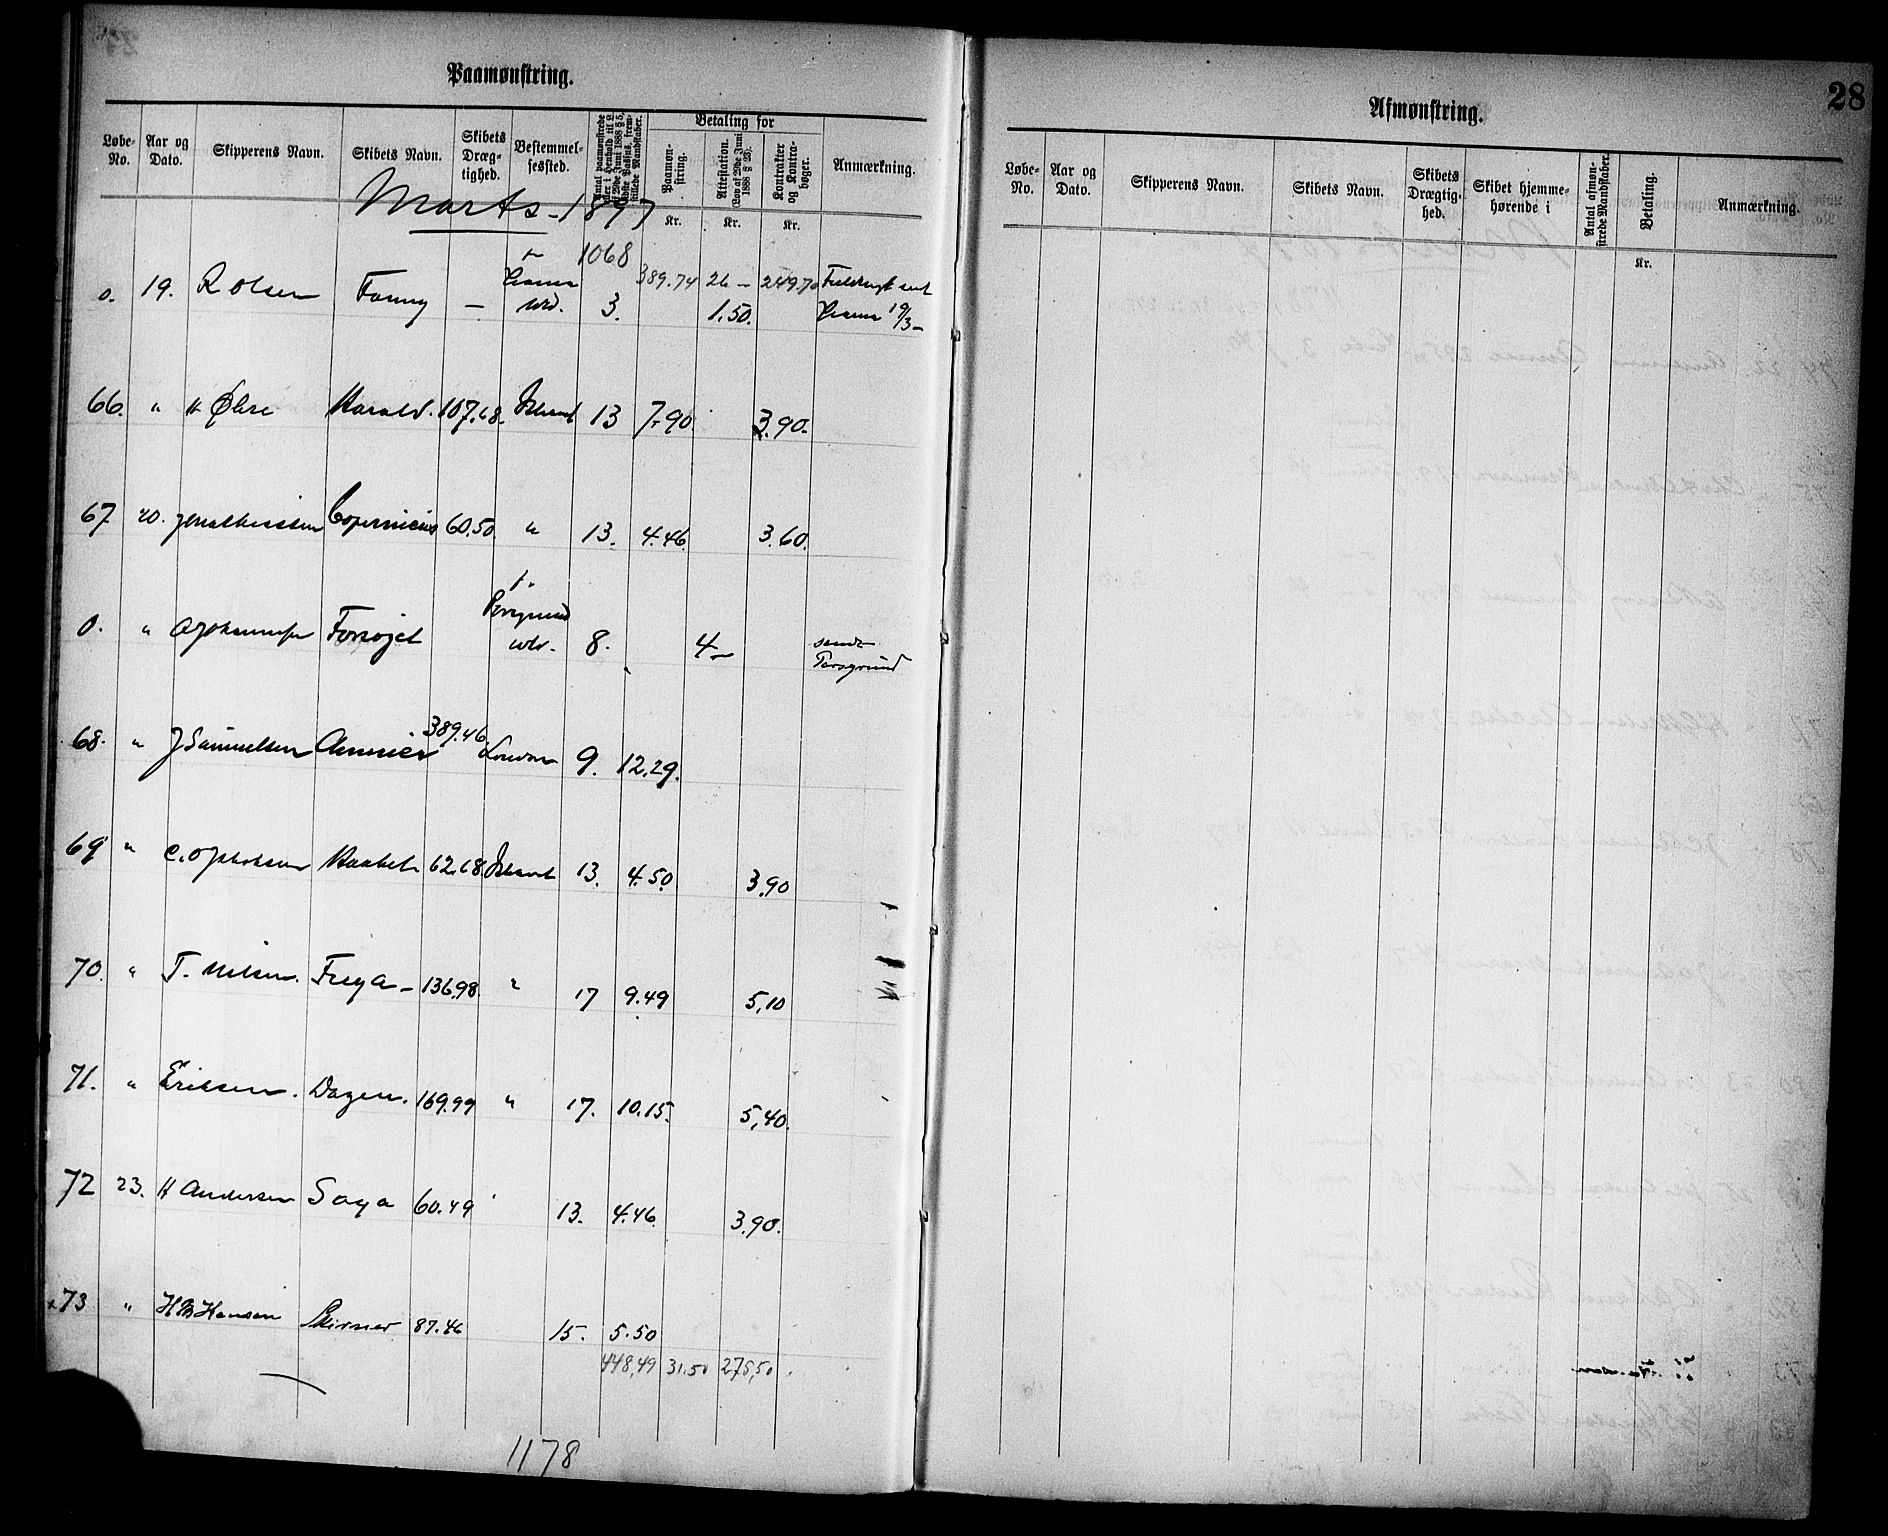 Paamønstring.
Løbe-No. Aar og Dato. Skipperens Navn. Skibets Navn. Skibets Dræg-tighed. Bestemmel-sessted. Betaling for Paamøn-string. Attestation. (Lov af 29de Juni 1888 § 23). Kontrakter og Kontra-bøger. Anmærkning.
Marts - 1897
Kr. Kr. Kr.
1068 389.74 26 — 249.70
0. 19. R Olsen Fanny — 3. 1.50. 19/3 —
66. " H Harald. 107.68. Island 13 7.90. 3.90.
67 20. Copernicus 60.50 " 13. 4.46. 3.60.
0. " Forsøget Porsgrund 8. 4 — sendt Porsgrund
68. " J Samuelsen 389.46 London 9. 12.29.
69 " C. O Jakobsen Haabet 62.68 Island 13. 4.50 3.90
70. " T. Nilsen. Freya — 136.98 " 17 9.49 5,10
71. " Eriksen. Dagen. 169.99 " 17. 10.15. 5,40.
72 23. H Andersen Saga 60.49 ' 13. 4.46. 3.90.
73 " H B Hansen Skirner 87.46 15. 5.50
448,49 31.50 275,50
1178
28
Afmønstring.
Løbe-No. Aar og Dato. Skipperens Navn. Skibets Navn. Skibets Drægtig-hed. Skibet hjemme-hørende i Antal afmøn-strede Mandskaber. Betaling. Anmærkning.
Kr.